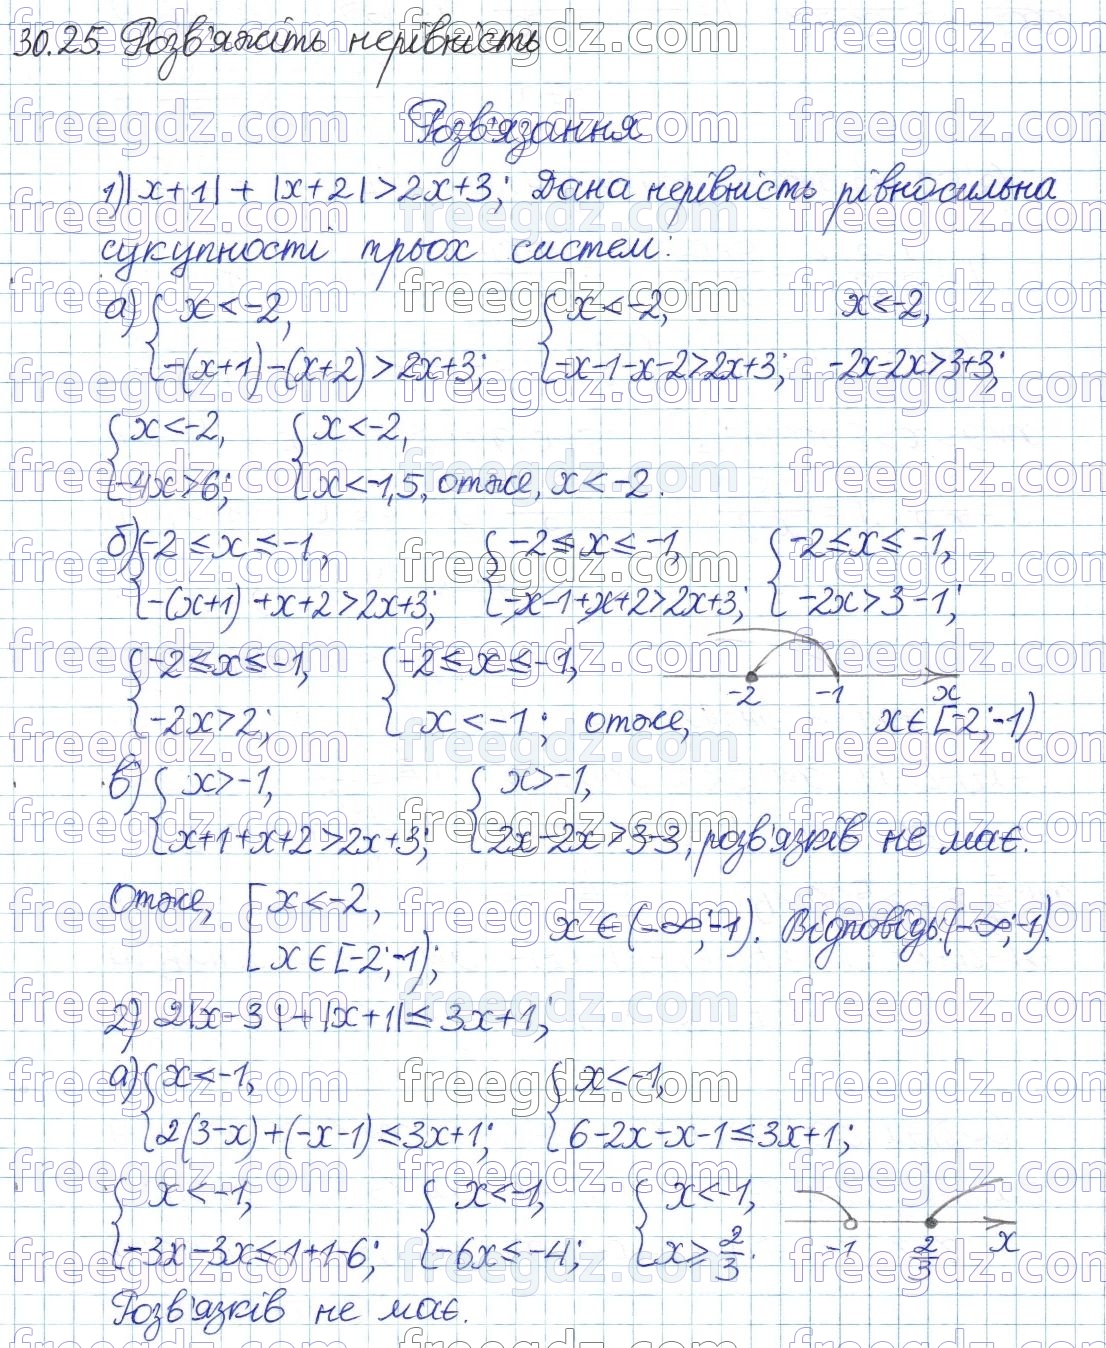 30.25. Розв'яжіть нерівність
Розв'язання
1) |x+1| + |x+2| > 2x+3; Дана нерівність рівносильна
сукупності трьох систем:
а) { x < -2, { x < -2, x < -2,
-(x+1)-(x+2) > 2x+3; -x-1-x-2 > 2x+3; -2x-2x > 3+3;
{ x < -2, { x < -2,
-4x > 6; x < -1,5, отже, x < -2.
б) { -2 ≤ x ≤ -1, { -2 ≤ x ≤ -1, { -2 ≤ x ≤ -1,
-(x+1)+x+2 > 2x+3; -x-1+x+2 > 2x+3; -2x > 3-1;
{ -2 ≤ x ≤ -1, { -2 ≤ x ≤ -1, -2 -1 x
-2x > 2; x < -1; отже, x ∈ [-2;-1)
в) { x > -1, { x > -1,
x+1+x+2 > 2x+3; 2x-2x > 3-3, розв'язків не має.
Отже, [ x < -2,
x ∈ [-2;-1); x ∈ (-∞;-1). Відповідь: (-∞;-1).
2) 2|x-3|+|x+1| ≤ 3x+1;
а) { x < -1, { x < -1,
2(3-x)+(-x-1) ≤ 3x+1; 6-2x-x-1 ≤ 3x+1;
{ x < -1, { x < -1, { x < -1,
-3x-3x ≤ 1+1-6; -6x ≤ -4; x ≥ 2/3. -1 2/3 x
Розв'язків не має.
freegdz.com